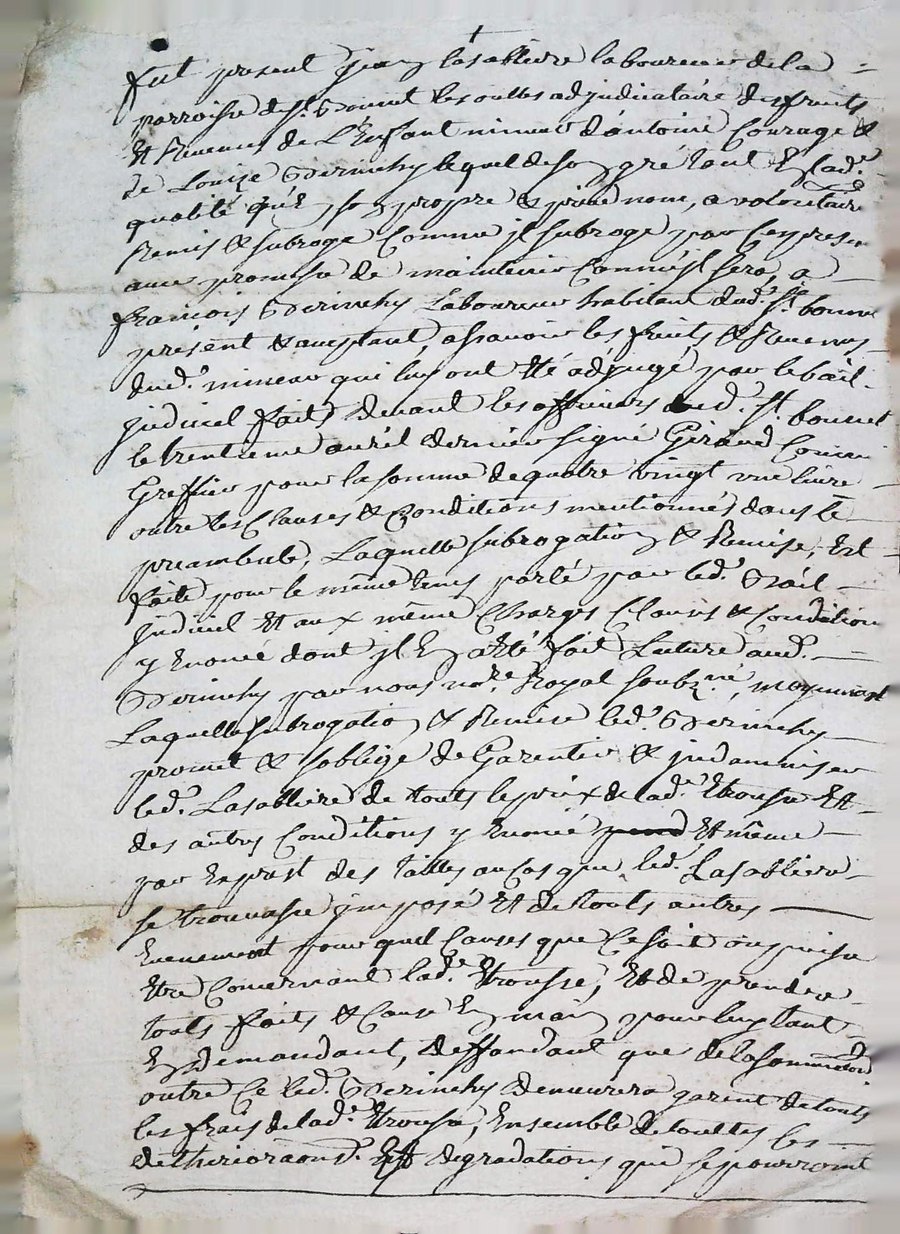 fut present Jean Lasabliere laboureur de la
parroisse de St. Bonnet les oulles adjudicataire des fruits
Et Revenus de L'Enfant mineur d'antoine Courage &
de Louize Perinchy lequel de son gré tant En lad.e
qualité qu'En son propre & privé nom, a volontaire
Remis & subrogé Comme jl subroge par Ces presen
avec promesse de maintenir Comme jl fera, a
françois Perinchy Laboureur habitant dud. St. bonnet
present & acceptant, assavoir les fruits & Revenus
dud. mineur qui luy ont Eté adjugé par le bail
judiciel fait devant les officiers dud. St. bonnet
le trentieme avril dernier signé Giraud Commis
Greffier pour la somme de quatre vingt une livre
outre les Clauses & Conditions mentionnés dans le
preambule, Laquelle subrogation & Remise, Est
faite pour le même tems porté par led. Bail
judiciel Et aux même Charges Clauses & Condition
y Enoncé dont jl En a Eté fait Lecture aud.
Perinchy par nous no.re Royal soubz.né, moyennant
Laquelle subrogation & Remise led. Perinchy
promet & soblige de Garentir & jndamniser
led. Lasabliere de touts le prix de lad.e Etrousse Et
des autres Conditions y Enoncé Et même
par Exprest des tailles au Cas que led. Lasabliere
se trouvasse jmposé Et de touts autres
Evenement pour quel Causes que Ce soit ou puisse
Etre Concernant lad.e Etrousse, Et de prendre
touts faits & Cause En main pour luy tant
En demandant, deffandant que de la sommation
outre Ce led. Perinchy demeurera garent de touts
les frais de lad.e Etrousse, Ensemble de touttes les
Et degradations qui se pourroint